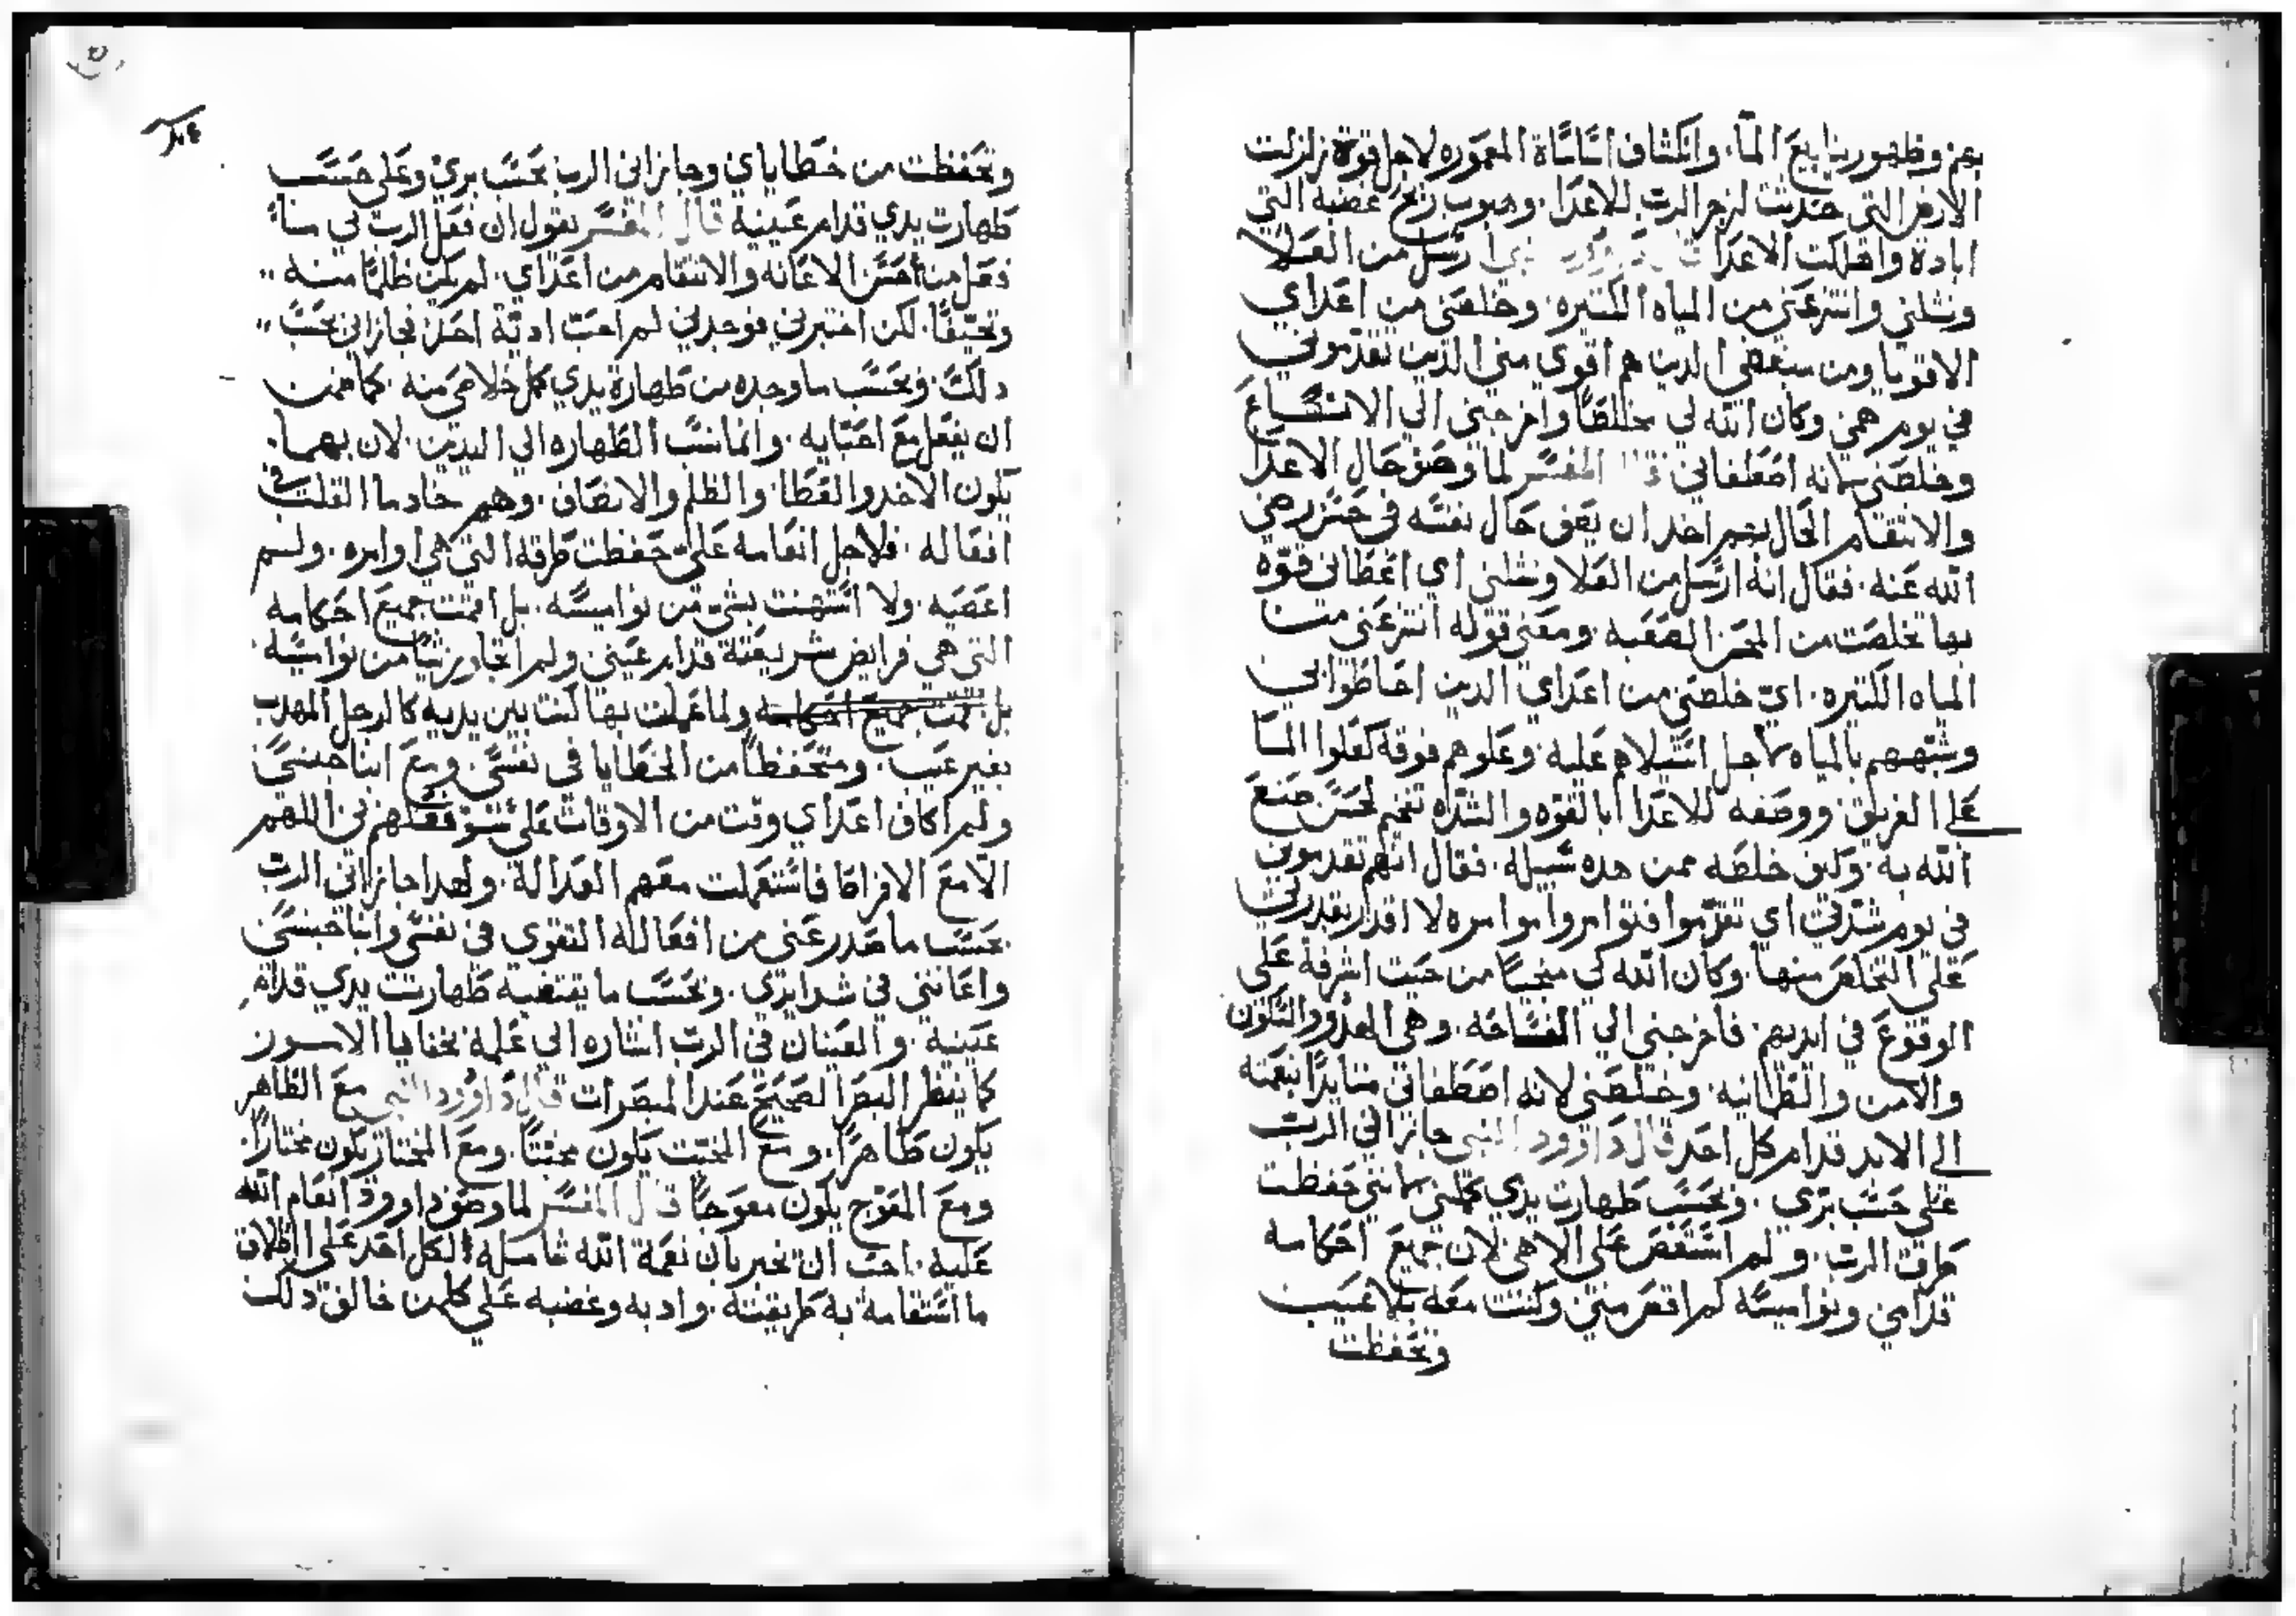 بهم وظهور ينابيع الما. وانكشاف اساساة المعموره لاجل قوة زلزلت
الارض التي حدثت لزجر الرب للاعدا. وهبوب ريح غضبه التي
ابادة واهلكت الاعدا قال داوود النبي ارسل من العلا
ونشلني وانتزعني من المياه الكتيره. وخلصني من اعداي
الاقويا ومن مبغضي الدين هم اقوي مني الدين تقدموني
في يوم همي وكان الله لي مخلصًا واخرجني الي الاتساع
وخلصني لانه اصطفاني قال المفسر لما وصف حال الاعدا
والانتقام الحال بهم اخد ان يصف حال نفسه في حسن رضي
الله عنه. فقال انه ارسل من العلا ونشلني اي اعطاني قوه
بها تخلصت من المحن الصعبه. ومعني قوله انتزعني من
المياه الكتيره. اي خلصني من اعداي الدين احاطوا بي
وشبههم بالمياه لاجل استيلاهم عليه. وعلوهم فوقه كعلوا الما
علي الغريق. ووصفه للاعدا بالقوه والشده تفخيم لحسن صنع
الله به. وكيف خلصه ممن هده سبيله. فقال انهم تقدموني
في يوم شدتي اي تقدموا فتوامروا موامره لا اقدر بقدرتي
علي التخلص منها. وكان الله لي منجيًا من حيت اشرفة علي
الوقوع في ايديهم. فاخرجني الي الفساحه. وهي الهدو والسكون
والامن والطمانيه. وخلصني لانه اصطفاني متايدًا بنعمته
الي الابد قدام كل احد قال داوود النبي جازاني الرب
علي حسب بري. وبحسب طهارت يدي كافاني لانني حفظت
طرق الرب. ولم استعص علي الاهي لان جميع احكامه
قدامي ونواميسه لم اقصر مني وكنت معه بلا عيب
وتحفظت
وتحفظت من خطاياي وجازاني الرب بحسب بري وعلي حسب
طهارت يدي قدام عينيه قال المفسر يقول ان فعل الرب بي سا
فعل من احسن الاعانه والانتقام من اعداي. لم يكن ظلمًا منه
وتحيفًا. لكن اختبرني فوجدني لم احب ادية احد فجازاني بحسب
دلك. وبحسب ما وجده من طهارة يدي كمل خلاصي منه. كما ممن
ان يفعل مع احبايه. وانما نسب الطهاره الي اليدين. لان بهما
يكون الاخد والعطا. والظلم والانصاف. وهم خادما القلب في
افعاله. فلاجل انعامه علي حفظت طرقه التي هي اوامره. ولم
اعصيه. ولا استهنت بشي من نواميسه. بل اقمت جميع احكامه
التي هي فرايض شريعته قدام عيني ولم اتجاوز شيًا من نواميسه
بل تممت جميع احكامه ولما عملت بها كنت بين يديه كالرجل المهدب
بغير عيب. ومتحفظًا من الخطايا في نفسي. ومع ابنا جنسي
ولم اكاف اعداي وقت من الاوقات علي سو فعلهم بي اللهم
الا مع الافراط فاستعملت معهم العدالة. ولهدا جازاني الرب
بحسب ما صدر عني من افعال له التقوي في نفسي وابنا جنسي
واعانني في شدايدي. وبحسب ما يقتضيه طهارت يدي قدام
عينيه. والعينان في الرب اشاره الي علمه بخفايا الامور
كما ينظر البصر الصحيح عند المبصرات قال داوود النبي مع الطاهر
يكون طاهرًا. ومع المخبت يكون مخبتًا. ومع المختار يكون مختارًا
ومع المعوج يكون معوجًا قال المفسر لما وصف داوود انعام الله
عليه. احب ان يخبر بان نعمة الله شامله لكل احد علي الاطلاق
ما استقامة به طريقته. وادبه وغضبه علي كلمن خالف دلك